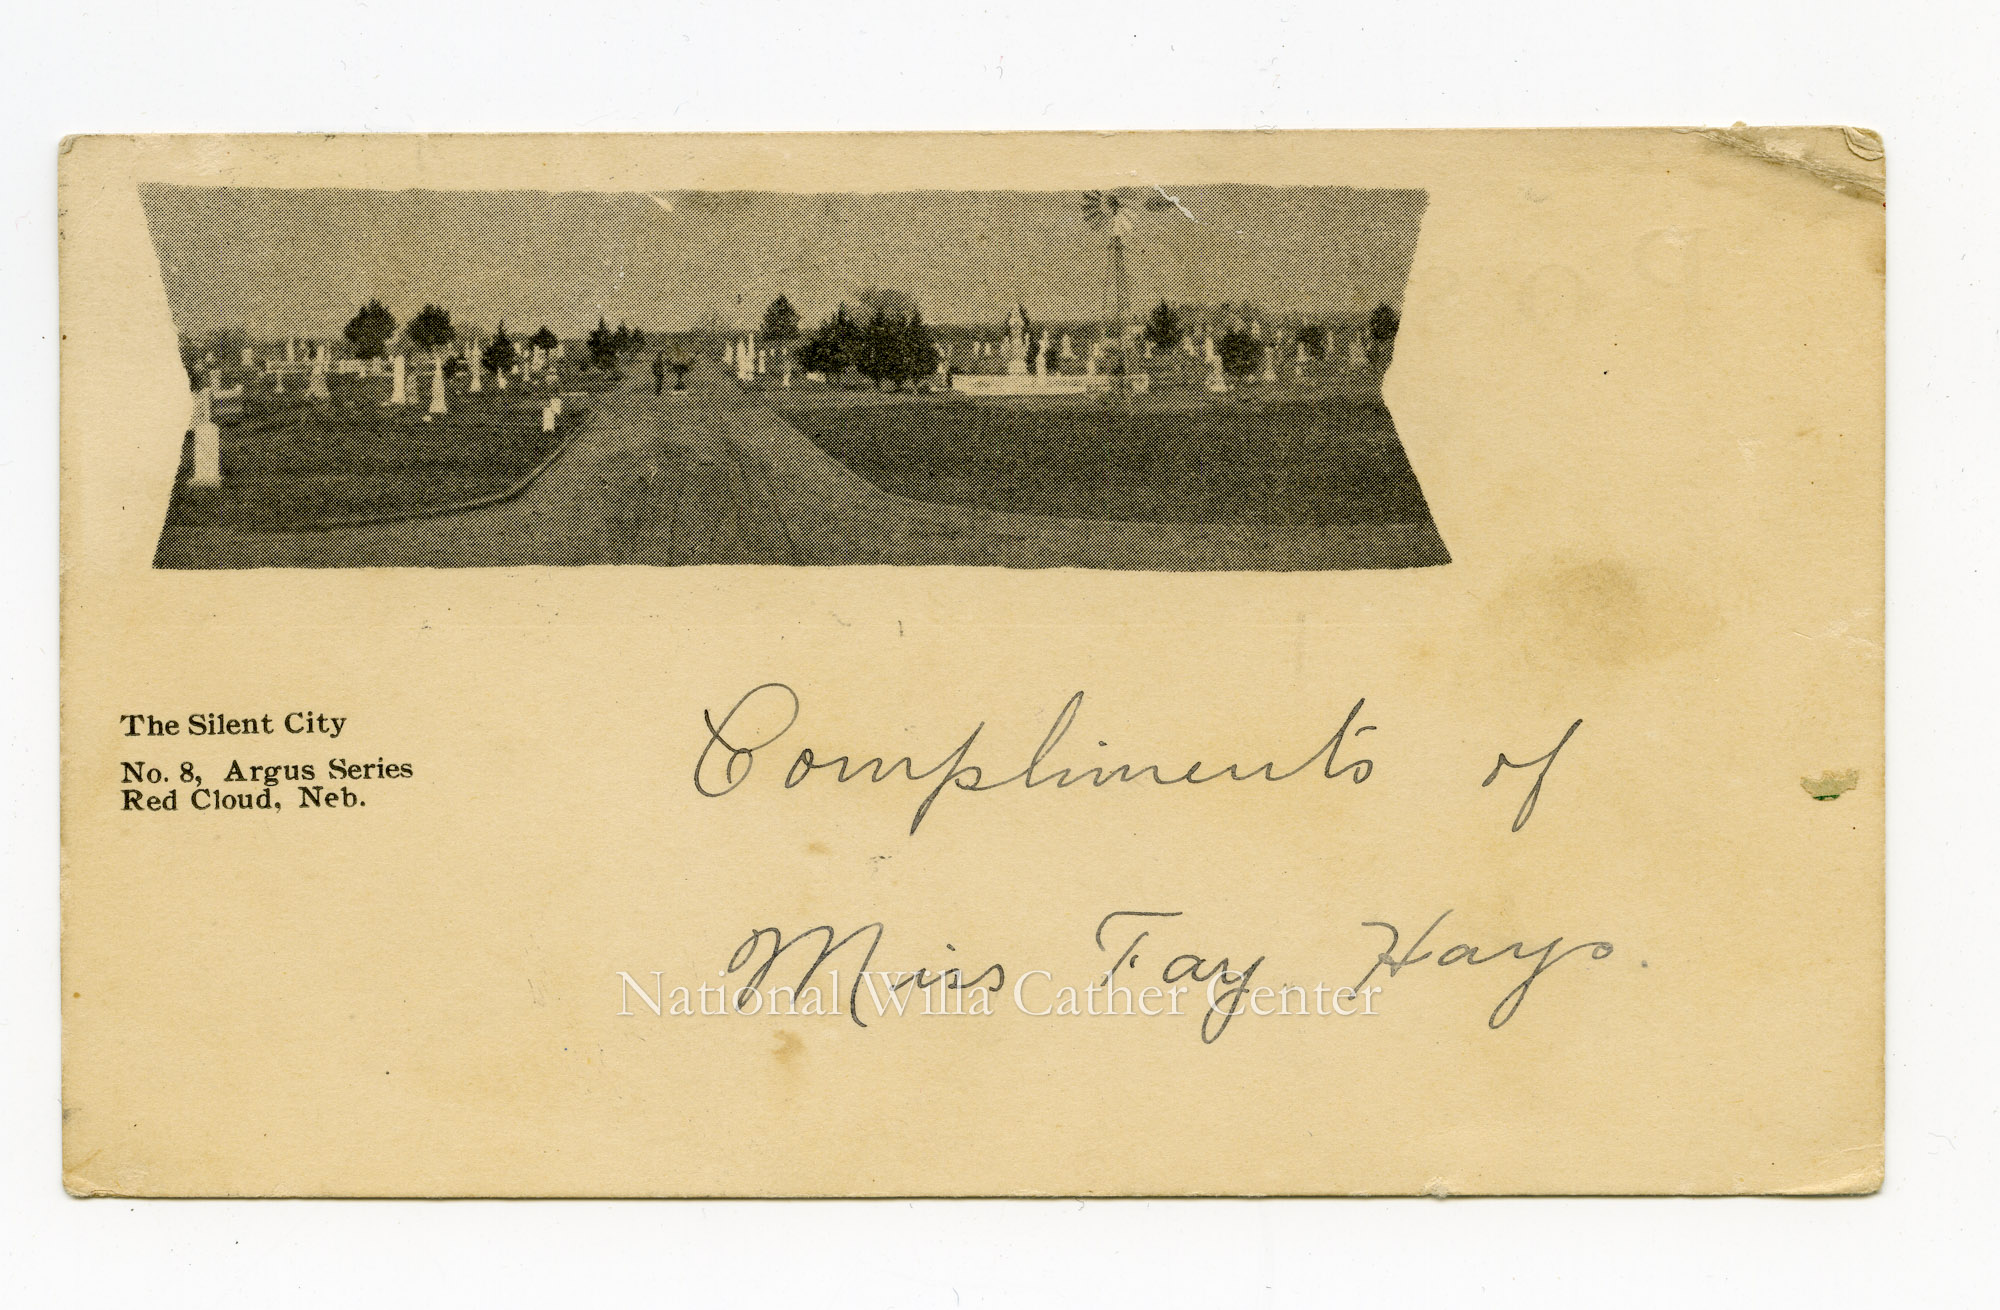 The Silent City
No. 8, Argus Series
Red Cloud, Neb.
Compliments of
Miss Fay Hays.
National Willa Cather Center